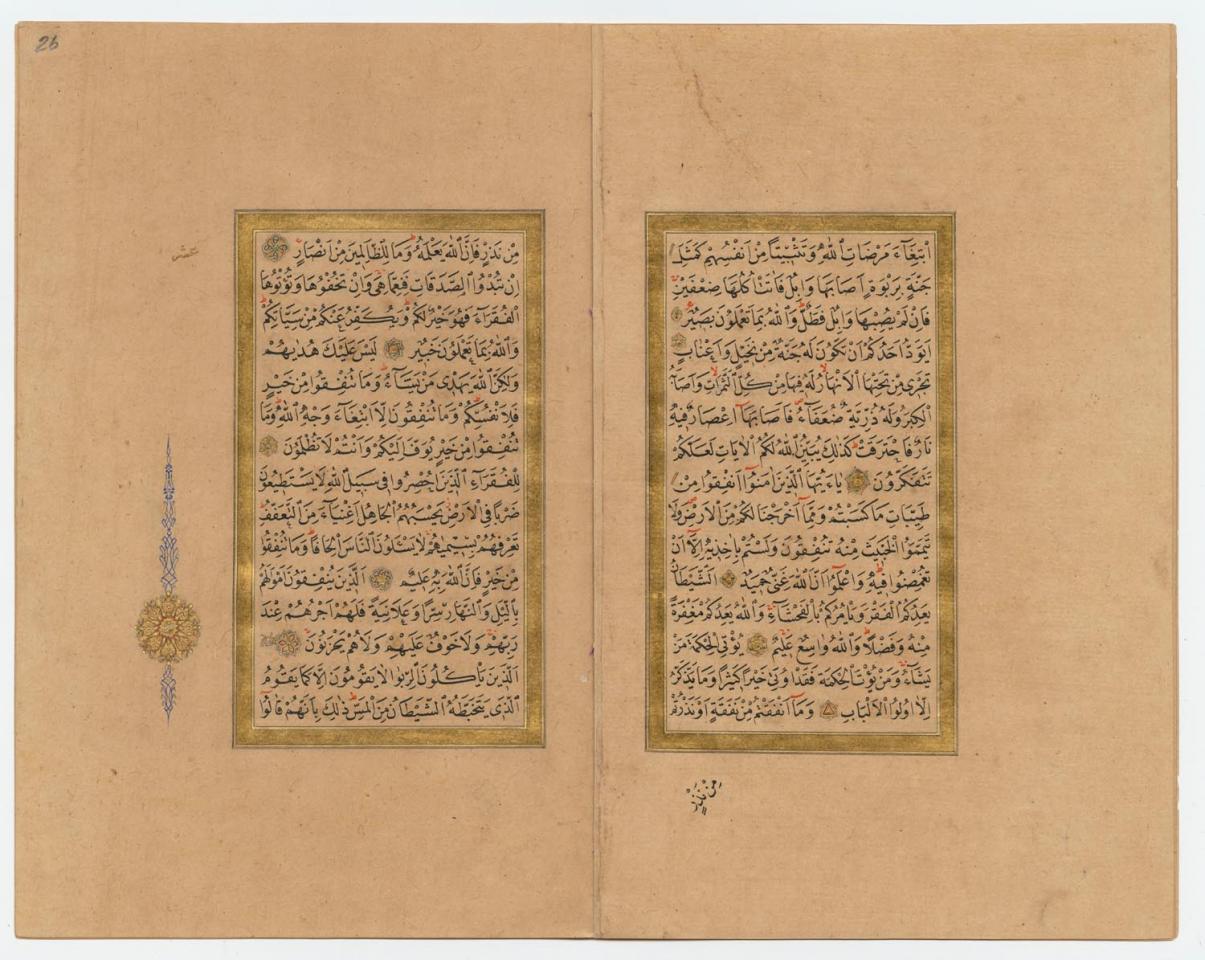 ابْتِغَآءَ مَرْضَاتِ اللّٰهِ وَتَثْبِيتًا مِنْ اَنْفُسِهِمْ كَمَثَلِ
جَنَّةٍ بِرَبْوَةٍ اَصَابَهَا وَابِلٌ فَاٰتَتْ اُكُلَهَا ضِعْفَيْنِ
فَاِنْ لَمْ يُصِبْهَا وَابِلٌ فَطَلٌّ وَاللّٰهُ بِمَا تَعْمَلُونَ بَصِيرٌ
اَيَوَدُّ اَحَدُكُمْ اَنْ تَكُونَ لَهُ جَنَّةٌ مِنْ نَخِيلٍ وَاَعْنَابٍ
تَجْرِى مِنْ تَحْتِهَا الْاَنْهَارُ لَهُ فِيهَا مِنْ كُلِّ الثَّمَرَاتِ وَاَصَابَهُ
الْكِبَرُ وَلَهُ ذُرِّيَّةٌ ضُعَفَآءُ فَاَصَابَهَا اِعْصَارٌ فِيهِ
نَارٌ فَاحْتَرَقَتْ كَذٰلِكَ يُبَيِّنُ اللّٰهُ لَكُمُ الْاٰيَاتِ لَعَلَّكُمْ
تَتَفَكَّرُونَ يَاۤءَيُّهَا الَّذِينَ اٰمَنُوا اَنْفِقُوا مِنْ
طَيِّبَاتِ مَا كَسَبْتُمْ وَمِمَّا اَخْرَجْنَا لَكُمْ مِنَ الْاَرْضِ وَلَا
تَيَمَّمُوا الْخَبِيثَ مِنْهُ تُنْفِقُونَ وَلَسْتُمْ بِاٰخِذِيهِ اِلَّا اَنْ
تُغْمِضُوا فِيهِ وَاعْلَمُوا اَنَّ اللّٰهَ غَنِىٌّ حَمِيدٌ اَلشَّيْطَانُ
يَعِدُكُمُ الْفَقْرَ وَيَاْمُرُكُمْ بِالْفَحْشَآءِ وَاللّٰهُ يَعِدُكُمْ مَغْفِرَةً
مِنْهُ وَفَضْلًا وَاللّٰهُ وَاسِعٌ عَلِيمٌ يُؤْتِى الْحِكْمَةَ مَنْ
يَشَآءُ وَمَنْ يُؤْتَ الْحِكْمَةَ فَقَدْ اُوتِىَ خَيْرًا كَثِيرًا وَمَا يَذَّكَّرُ
اِلَّا اُولُوا الْاَلْبَابِ وَمَا اَنْفَقْتُمْ مِنْ نَفَقَةٍ اَوْ نَذَرْتُمْ
مِنْ نَذْرٍ
26
مِنْ نَذْرٍ فَاِنَّ اللّٰهَ يَعْلَمُهُ وَمَا لِلظَّالِمِينَ مِنْ اَنْصَارٍ
اِنْ تُبْدُوا الصَّدَقَاتِ فَنِعِمَّا هِىَ وَاِنْ تُخْفُوهَا وَتُؤْتُوهَا
الْفُقَرَآءَ فَهُوَ خَيْرٌ لَكُمْ وَيُكَفِّرُ عَنْكُمْ مِنْ سَيِّاٰتِكُمْ
وَاللّٰهُ بِمَا تَعْمَلُونَ خَبِيرٌ لَيْسَ عَلَيْكَ هُدٰيهُمْ
وَلٰكِنَّ اللّٰهَ يَهْدِى مَنْ يَشَآءُ وَمَا تُنْفِقُوا مِنْ خَيْرٍ
فَلِاَنْفُسِكُمْ وَمَا تُنْفِقُونَ اِلَّا ابْتِغَآءَ وَجْهِ اللّٰهِ وَمَا
تُنْفِقُوا مِنْ خَيْرٍ يُوَفَّ اِلَيْكُمْ وَاَنْتُمْ لَا تُظْلَمُونَ
لِلْفُقَرَآءِ الَّذِينَ اُحْصِرُوا فِى سَبِيلِ اللّٰهِ لَا يَسْتَطِيعُونَ
ضَرْبًا فِى الْاَرْضِ يَحْسَبُهُمُ الْجَاهِلُ اَغْنِيَآءَ مِنَ التَّعَفُّفِ
تَعْرِفُهُمْ بِسِيمٰيهُمْ لَا يَسْئَلُونَ النَّاسَ اِلْحَافًا وَمَا تُنْفِقُوا
مِنْ خَيْرٍ فَاِنَّ اللّٰهَ بِهِ عَلِيمٌ اَلَّذِينَ يُنْفِقُونَ اَمْوَالَهُمْ
بِالَّيْلِ وَالنَّهَارِ سِرًّا وَعَلَانِيَةً فَلَهُمْ اَجْرُهُمْ عِنْدَ
رَبِّهِمْ وَلَا خَوْفٌ عَلَيْهِمْ وَلَا هُمْ يَحْزَنُونَ
اَلَّذِينَ يَاْكُلُونَ الرِّبٰوا لَا يَقُومُونَ اِلَّا كَمَا يَقُومُ
الَّذِى يَتَخَبَّطُهُ الشَّيْطَانُ مِنَ الْمَسِّ ذٰلِكَ بِاَنَّهُمْ قَالُوا
عشر